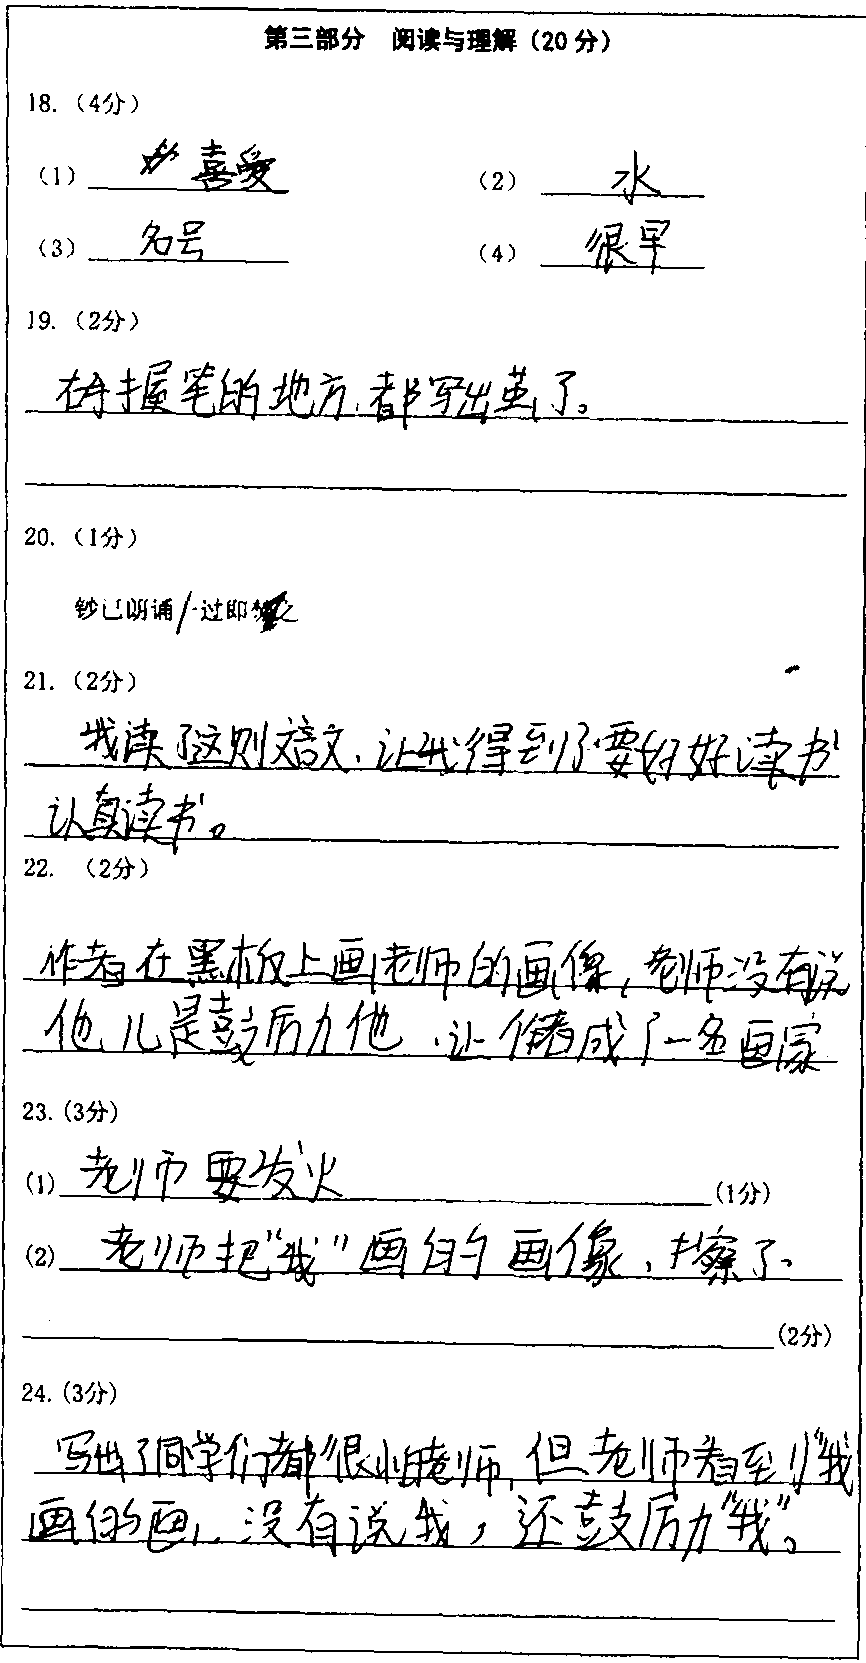 第三部分 阅读与理解（20分）
18.（4分）
（1） 喜爱 （2） 水
（3） 名号 （4） 很早
19.（2分）
右手握笔的地方,都写出茧了。
20.（1分）
钞已朗诵/一过即焚
21.（2分）
我读了这则文言文,让我得到了要好好读书
认真读书。
22. （2分）
作者在黑板上画老师的画像,老师没有说
他,儿是鼓厉力他,让作者成了一名画家
23.(3分)
(1) 老师要发火 (1分)
(2) 老师把“我”画的画像,擦了.
(2分)
24.(3分)
写出了同学们都很怕老师,但老师看到“我
画的画,没有说我,还鼓厉力“我”。